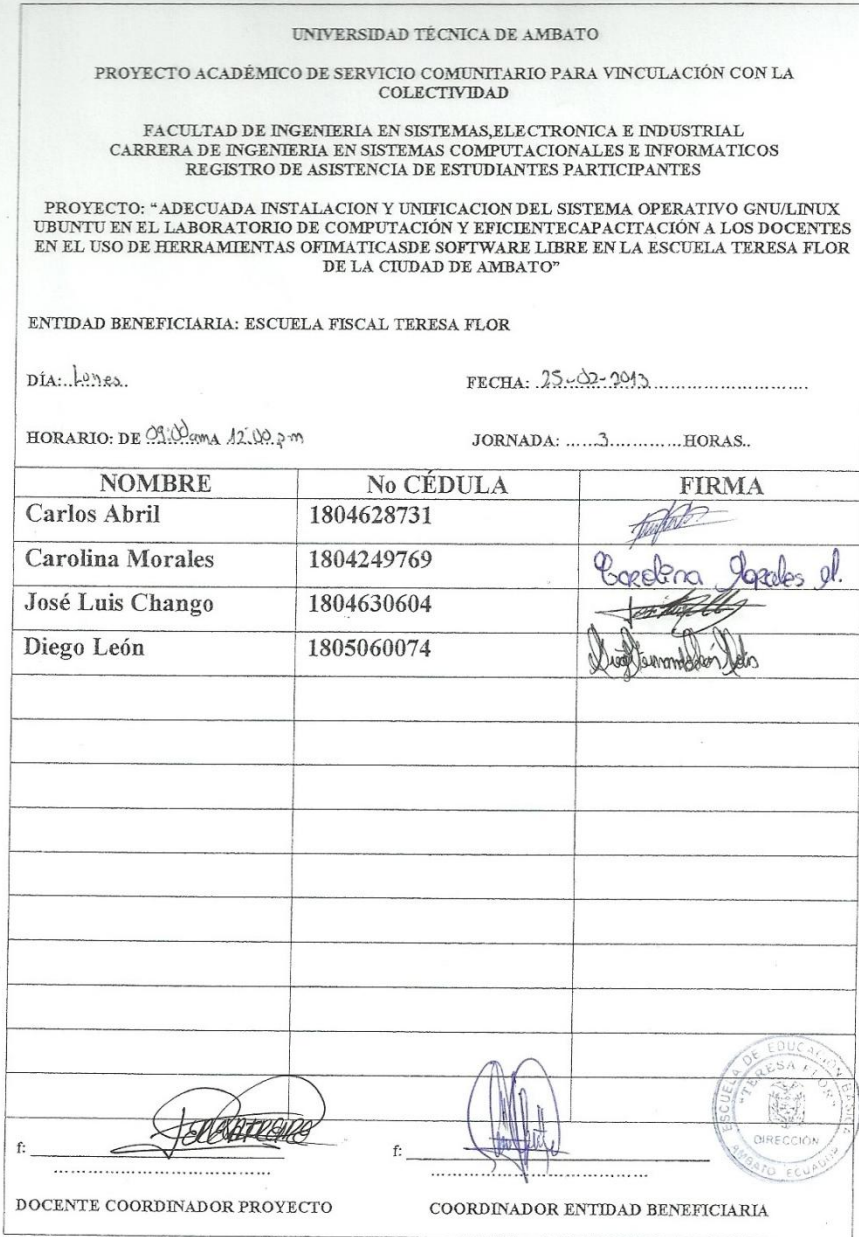 UNIVERSIDAD TÉCNICA DE AMBATO
PROYECTO ACADÉMICO DE SERVICIO COMUNITARIO PARA VINCULACIÓN CON LA
COLECTIVIDAD
FACULTAD DE INGENIERIA EN SISTEMAS,ELECTRONICA E INDUSTRIAL
CARRERA DE INGENIERIA EN SISTEMAS COMPUTACIONALES E INFORMATICOS
REGISTRO DE ASISTENCIA DE ESTUDIANTES PARTICIPANTES
PROYECTO: “ADECUADA INSTALACION Y UNIFICACION DEL SISTEMA OPERATIVO GNU/LINUX
UBUNTU EN EL LABORATORIO DE COMPUTACIÓN Y EFICIENTECAPACITACIÓN A LOS DOCENTES
EN EL USO DE HERRAMIENTAS OFIMATICASDE SOFTWARE LIBRE EN LA ESCUELA TERESA FLOR
DE LA CIUDAD DE AMBATO”
ENTIDAD BENEFICIARIA: ESCUELA FISCAL TERESA FLOR
DÍA: Lunes FECHA: 25-02-2013
HORARIO: DE 09:00am A 12:00 p.m JORNADA: 3 HORAS..
NOMBRE No CÉDULA FIRMA
Carlos Abril 1804628731
Carolina Morales 1804249769 Carolina Morales M.
José Luis Chango 1804630604
Diego León 1805060074
f: f:
DOCENTE COORDINADOR PROYECTO COORDINADOR ENTIDAD BENEFICIARIA
ESCUELA DE EDUCACIÓN BÁSICA
"TERESA FLOR"
DIRECCIÓN
AMBATO ECUADOR